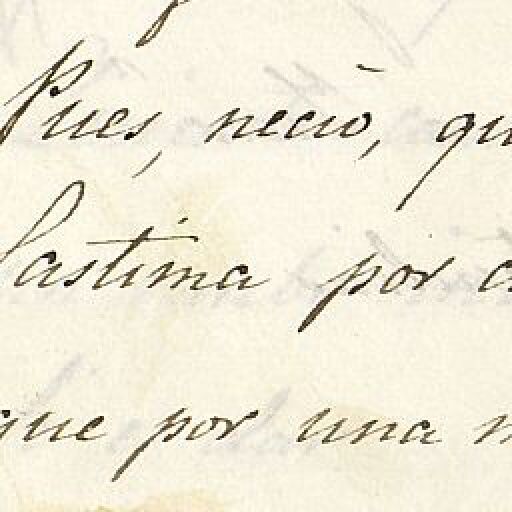 Pues, necio, qu
Lastima por c
que por una m